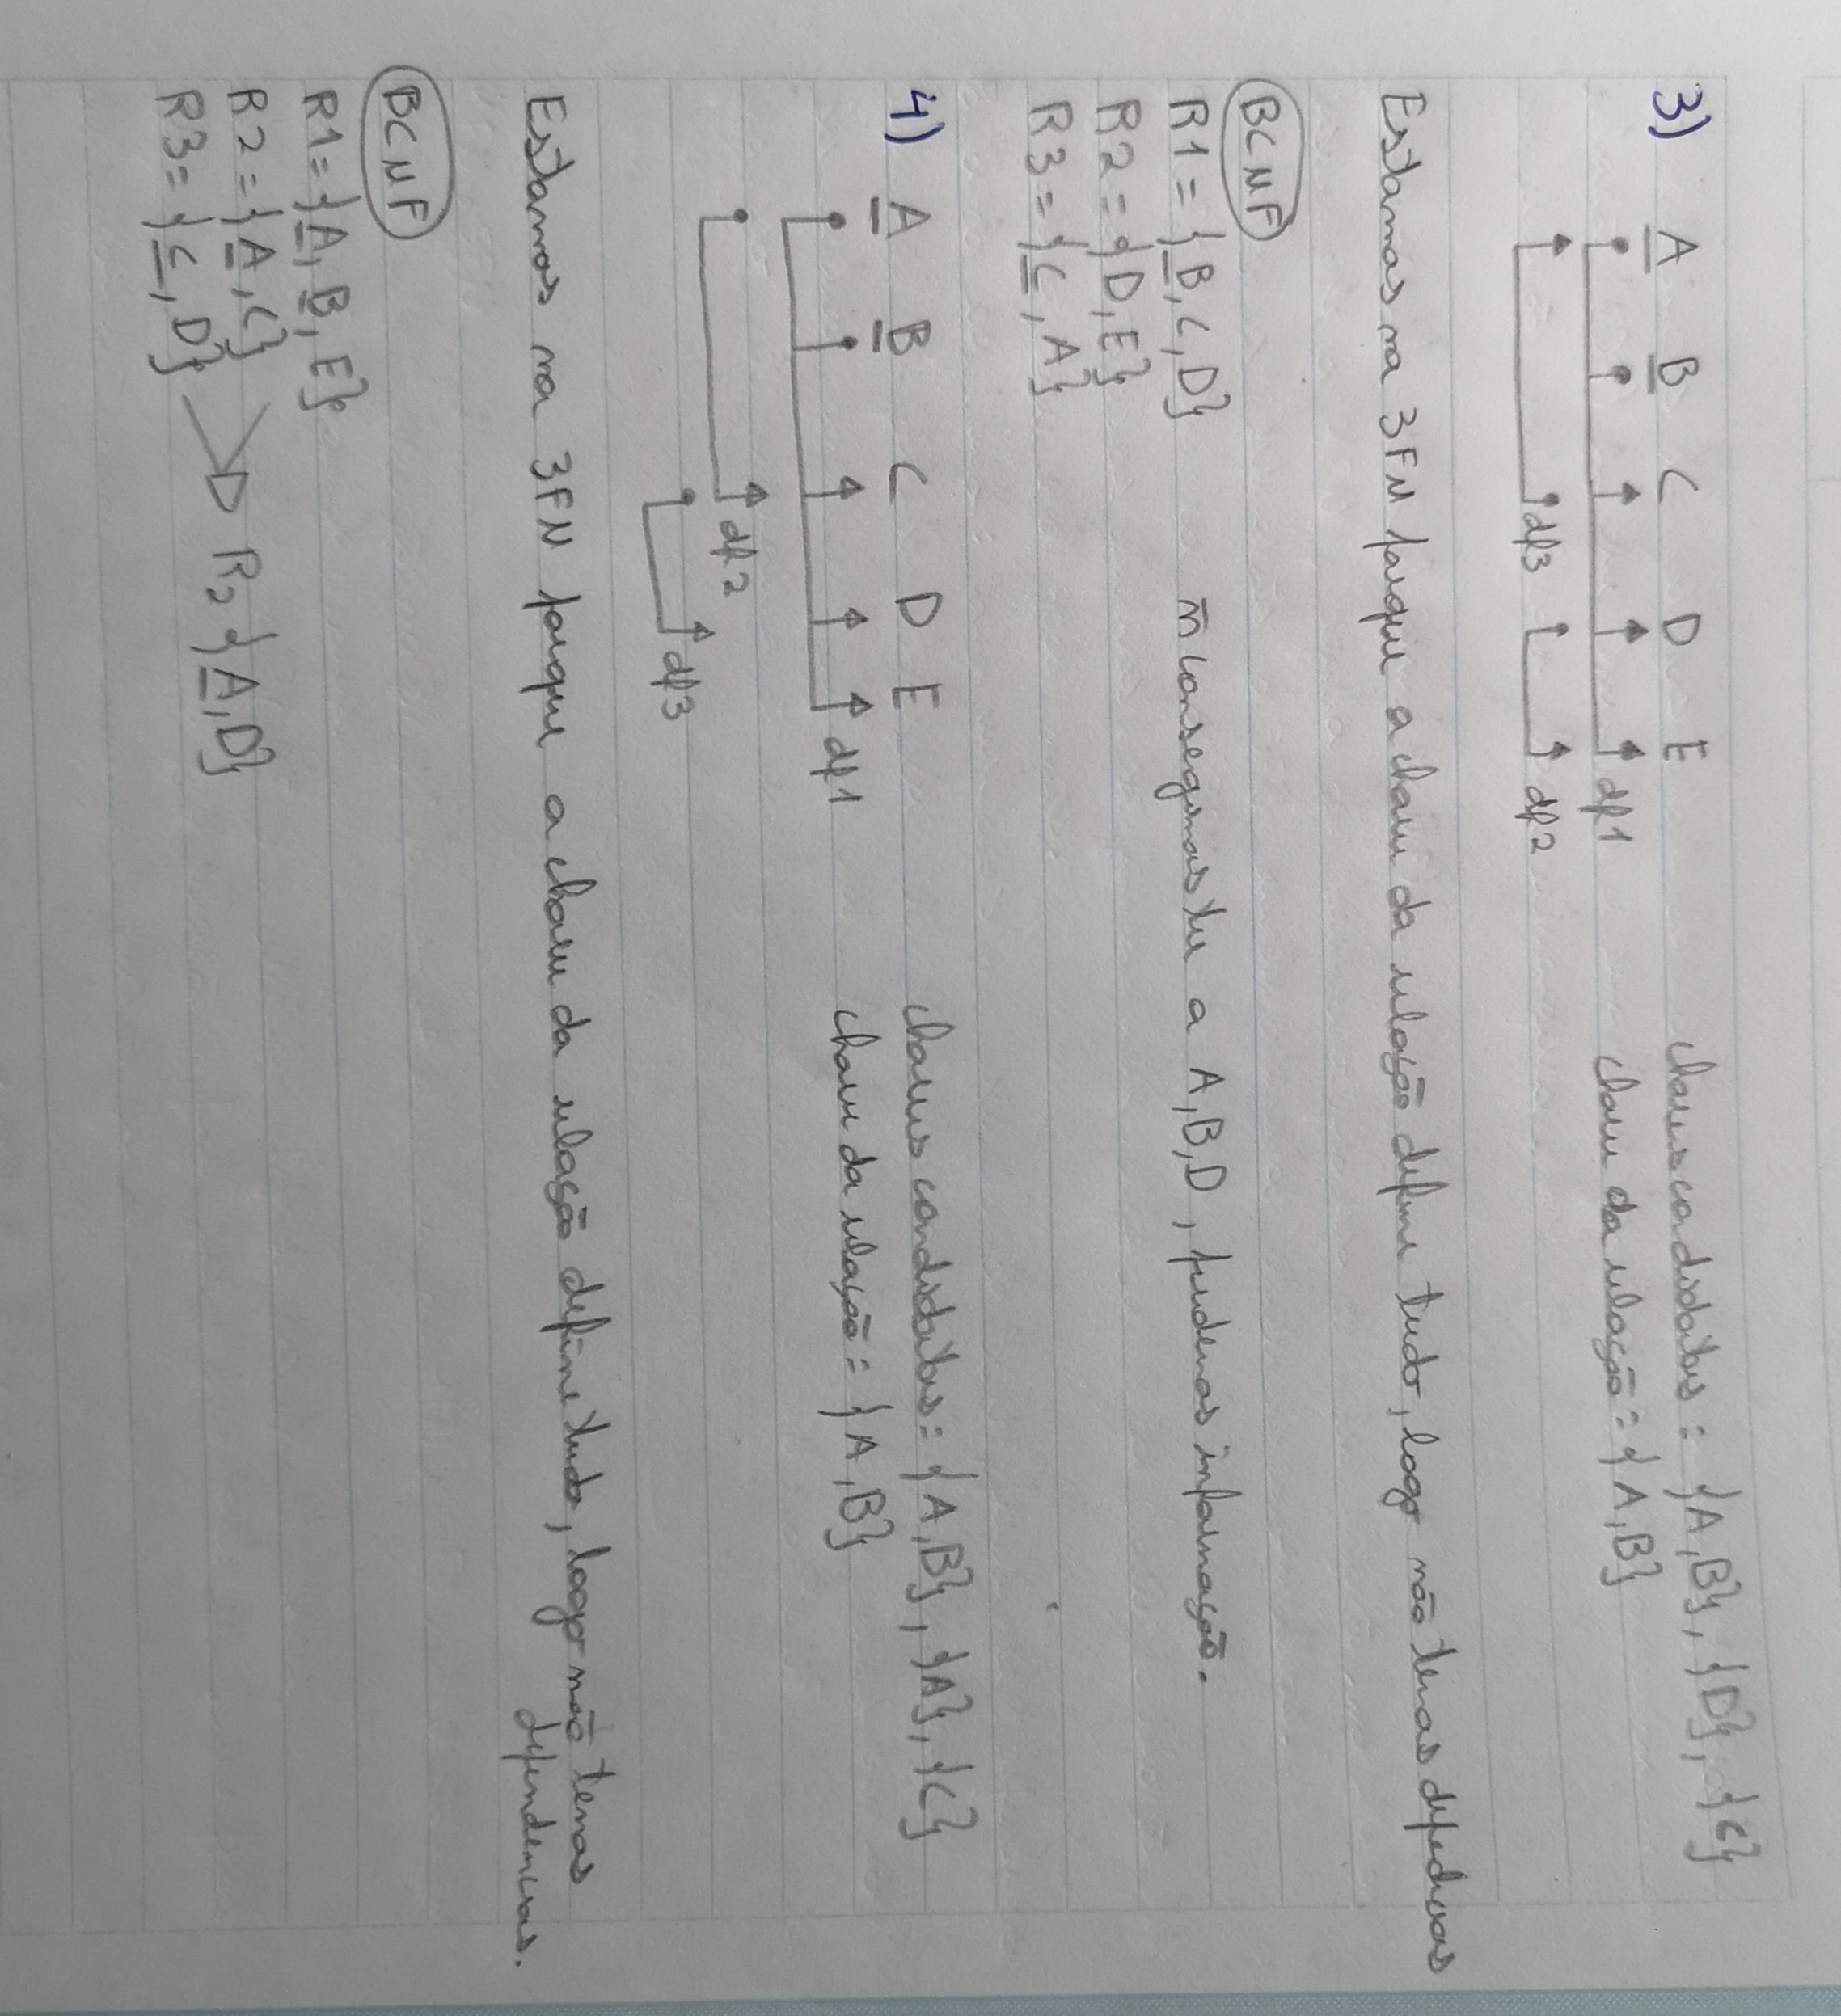 3) A B C D E chaves candidatas = {A,B}, {D}, {C}
df1 chave da relação = {A,B}
df3 df2
Estamos na 3FN porque a chave da relação define tudo, logo não temos
BCNF
R1 = {B, C, D} ñ conseguimos ter a A, B, D, perdemos informação.
R2 = {D, E}
R3 = {C, A}
4) A B C D E chaves candidatas = {A,B}, {A}, {C}
df1 chave da relação = {A,B}
df2
df3
Estamos na 3FN porque a chave da relação define tudo, logo não temos
dependencias.
BCNF
R1 = {A, B, E}
R2 = {A, C}
R3 = {C, D} R2 {A, D}